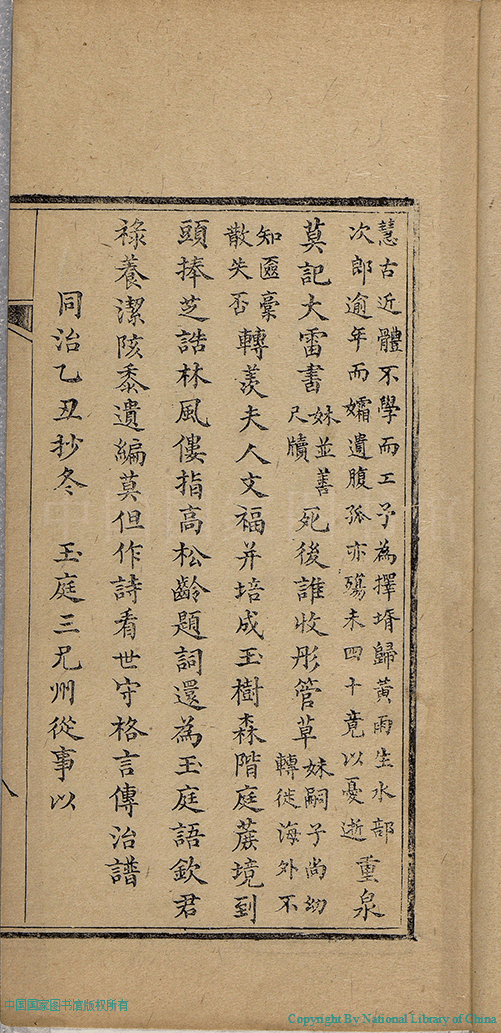 慧古近體不學而工予為擇壻歸黃雨生水部
次郎逾年而孀遺腹孤亦殤未四十竟以憂逝
重泉
莫記大雷書
妹並善
尺牘
死後誰收彤管草
妹嗣子尚幼
轉徙海外不
知匳稾
散失否
轉羨夫人文福并培成玉樹森階庭蔗境到
頭捧芝誥林風僂指高松齡題詞還為玉庭語欽君
祿養潔陔黍遺編莫但作詩看世守格言傳治譜
同治乙丑抄冬 玉庭三兄州從事以
中国国家图书馆版权所有
Copyright By National Library of China